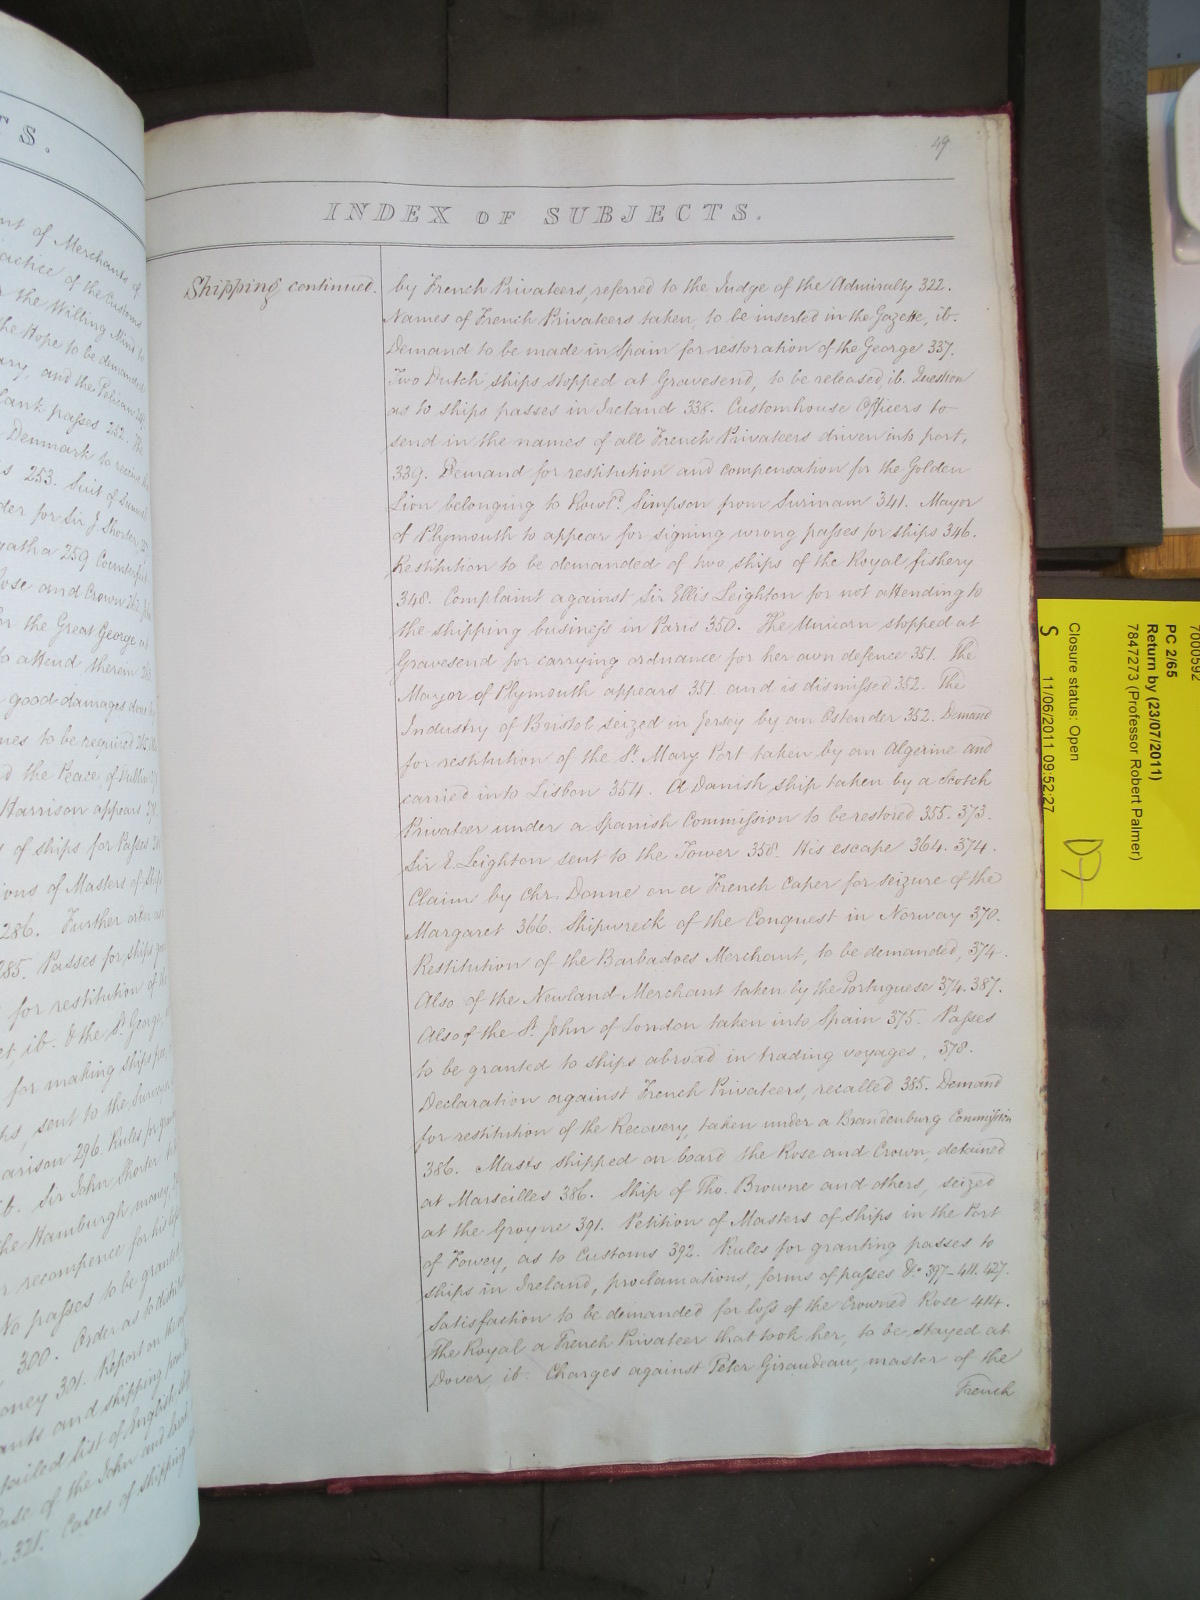 TS.
nt of Merchants of
actice of the Customs
the Willing Mind to
the Hope to be demanded
ary, and the Pelican
lank passes 252. The
Denmark to receive
s 253. Suit of
der for Sir J Shorter,
gatha 259 Counterfeit
Rose and Crown 262
or the Great George
to attend therein
good damages done
mes to be required 265
d the Peace of
Harrison appears
of ships for Passes
ions of Masters of Ships
286. Further order
285. Passes for ships
for restitution of the
et, ib. & the St. George,
for making ships free
hs, sent to the
arison 296. Rules for
ib. Sir John Shorter
the Hamburgh money,
r recompence for his
No passes to be granted
300. Order as to
oney 301. Report on
ants and shipping
tailed list of English
ase of the John and
321. Cases of shipping
49
INDEX OF SUBJECTS.
Shipping continued.
by French Privateers, referred to the Judge of the Admiralty 322.
Names of French Privateers taken, to be inserted in the Gazette, ib.
Demand to be made in Spain for restoration of the George 337.
Two Dutch ships stopped at Gravesend, to be released, ib. Question
as to ships passes in Ireland 338. Customhouse Officers to
send in the names of all French Privateers driven into port,
339. Demand for restitution and compensation for the Golden
Lion belonging to Rowld. Simpson from Surinam 341. Mayor
of Plymouth to appear for signing wrong passes for ships 346.
Restitution to be demanded of two ships of the Royal fishery
348. Complaint against Sir Ellis Leighton for not attending to
the shipping business in Paris 350. The Unicorn stopped at
Gravesend for carrying ordnance for her own defence 351. The
Mayor of Plymouth appears 351. and is dismissed 352. The
Industry of Bristol seized in Jersey by an Ostender 352. Demand
for restitution of the St. Mary Port taken by an Algerine and
carried into Lisbon 354. A Danish ship taken by a Scotch
Privateer under a Spanish Commission to be restored 355. 373.
Sir E. Leighton sent to the Tower 358. His escape 364. 374.
Claim by Chr. Donne on a French Caper for seizure of the
Margaret 366. Shipwreck of the Conquest in Norway 370.
Restitution of the Barbadoes Merchant, to be demanded, 374.
Also of the Newland Merchant taken by the Portuguese 374. 387.
Also of the St. John of London taken into Spain 375. Passes
to be granted to ships abroad in trading voyages, 378.
Declaration against French Privateers, recalled 385. Demand
for restitution of the Recovery, taken under a Brandenburg Commission
386. Masts shipped on board the Rose and Crown, detained
at Marseilles 386. Ship of Tho. Browne and others, seized
at the Groyne 391. Petition of Masters of ships in the Port
of Fowey, as to Customs 392. Rules for granting passes to
ships in Ireland, proclamations, forms of passes &c. 397-411. 427.
Satisfaction to be demanded for loss of the Crowned Rose 414.
The Royal a French Privateer that took her, to be stayed at
Dover, ib. Charges against Peter Giraudeau, master of the
French
7000592
PC 2/65
Return by (23/07/2011)
7847273 (Professor Robert Palmer)
Closure status: Open
S 11/06/2011 09:52:27